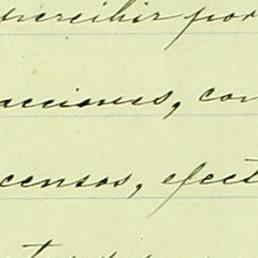 percibir por
acciones, con
censos, efect